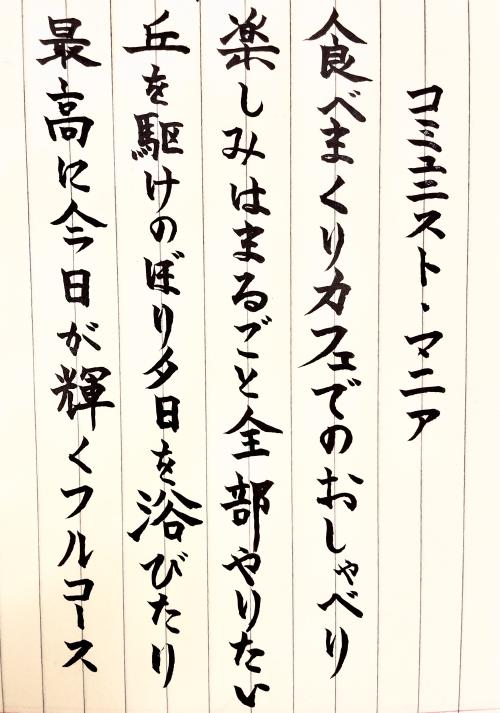 コミュニスト・マニア
食べまくりカフェでのおしゃべり
楽しみはまるごと全部やりたい
丘を駆けのぼり夕日を浴びたり
最高に今日が輝くフルコース